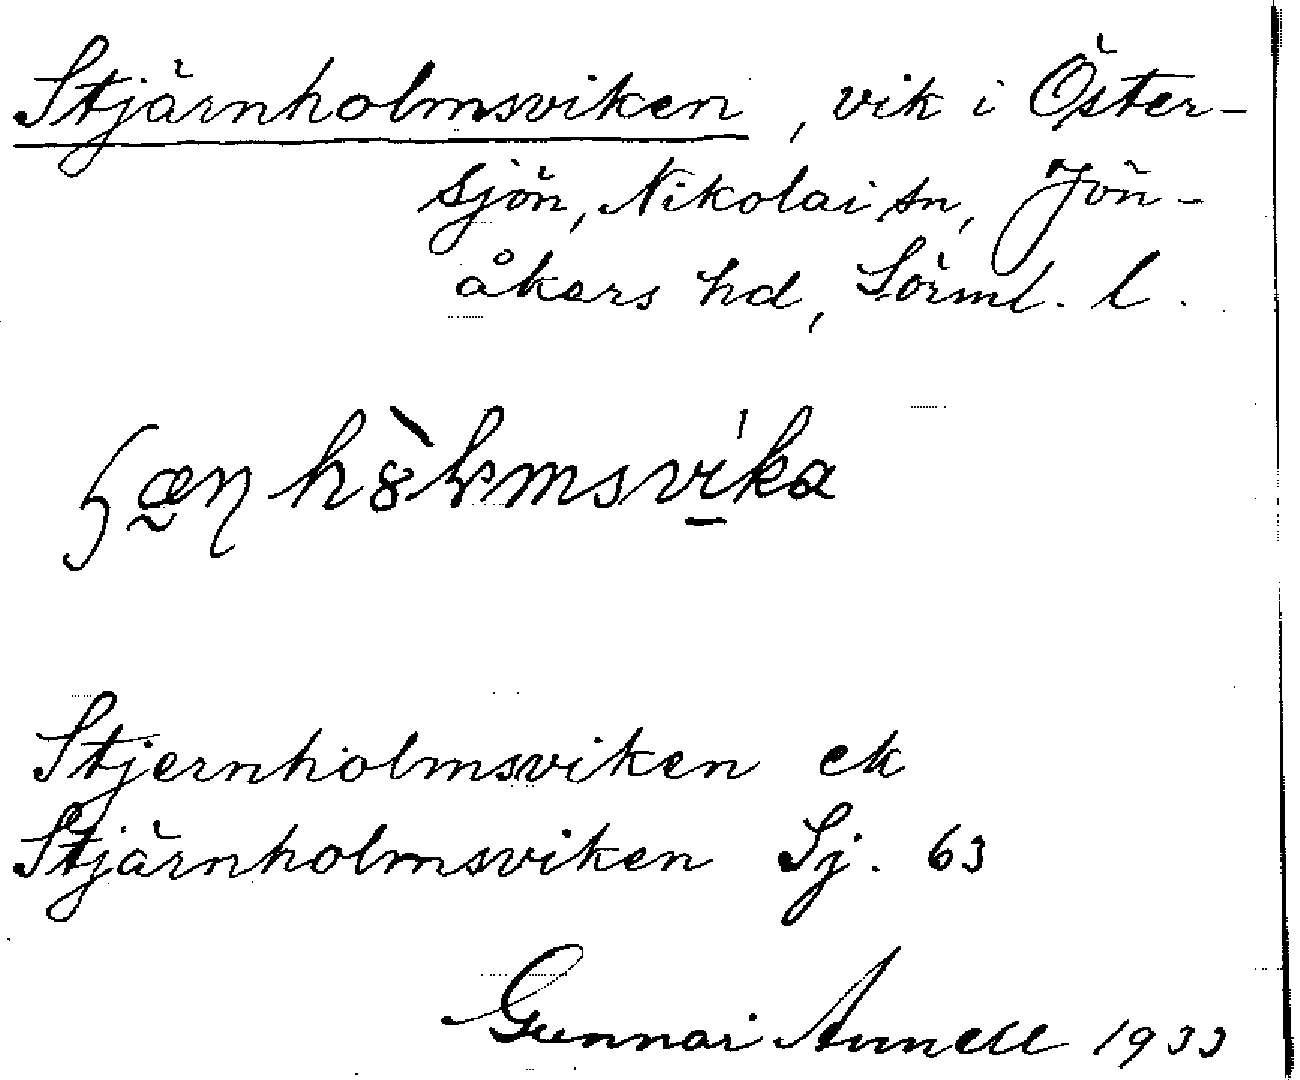 Stjärnholmsviken, vik i Öster-
sjön, Nikolai sn, Jön-
åkers hd, Sörml. l.
Stjernholmsviken ek
Stjärnholmsviken Sj. 63
Gunnar Annell 1933